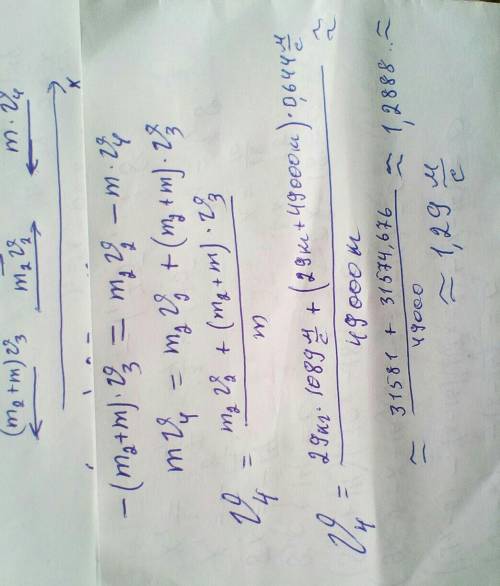 (m₂+m)ϑ₃ m₂ϑ₂ m·ϑ₄
x
-(m₂+m)·ϑ₃ = m₂ϑ₂ - m·ϑ₄
mϑ₄ = m₂ϑ₂ + (m₂+m)·ϑ₃
ϑ₄ = (m₂ϑ₂ + (m₂+m)·ϑ₃) / m
ϑ₄ = (29кг·1089 м/с + (29кг+49000кг)·0,644 м/с) / 49000кг ≈
≈ (31581 + 31574,676) / 49000 ≈ 1,2888.. ≈
≈ 1,29 м/с